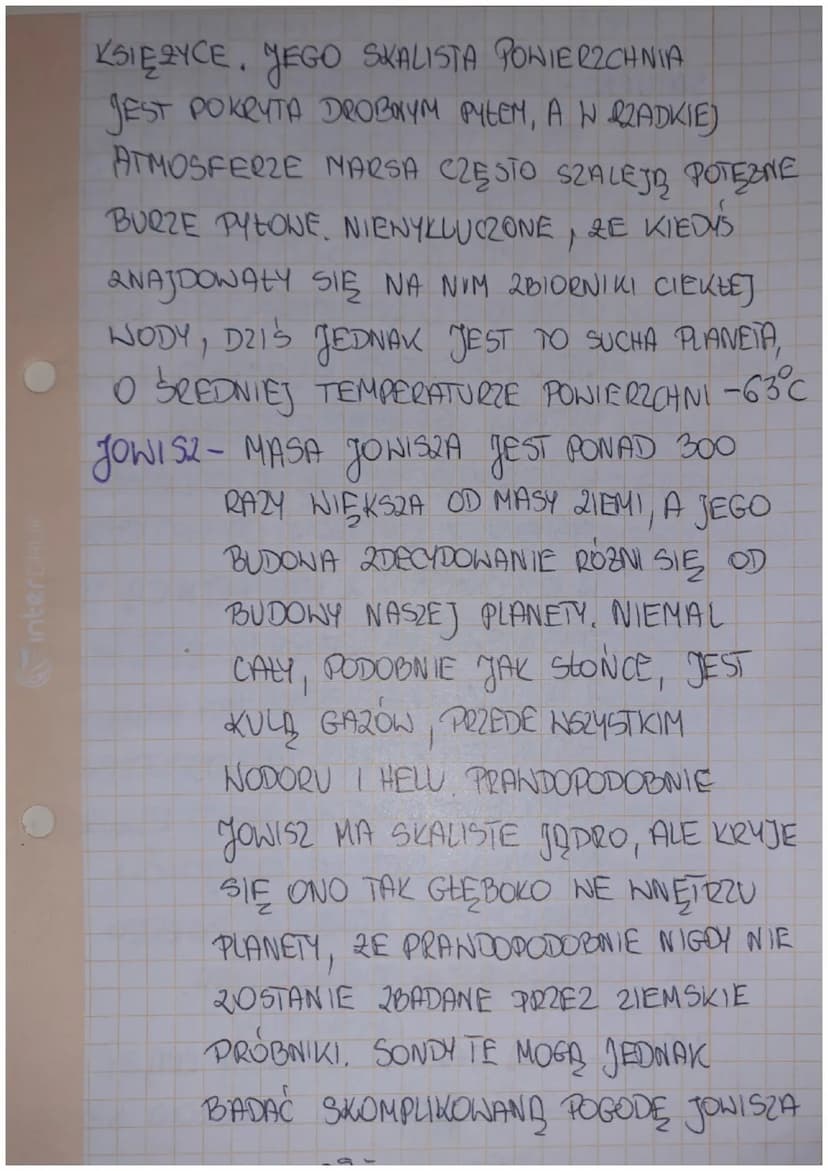 KSIĘŻYCE. JEGO SKALISTA POWIERZCHNIA
JEST POKRYTA DROBNYM PYŁEM, A W RZADKIEJ
ATMOSFERZE MARSA CZĘSTO SZALEJĄ POTĘŻNE
BURZE PYŁOWE. NIEWYKLUCZONE, ŻE KIEDYŚ
ZNAJDOWAŁY SIĘ NA NIM ZBIORNIKI CIEKŁEJ
WODY, DZIŚ JEDNAK JEST TO SUCHA PLANETA,
O ŚREDNIEJ TEMPERATURZE POWIERZCHNI -63°C
JOWISZ- MASA JOWISZA JEST PONAD 300
RAZY WIĘKSZA OD MASY ZIEMI, A JEGO
BUDOWA ZDECYDOWANIE RÓŻNI SIĘ OD
BUDOWY NASZEJ PLANETY. NIEMAL
CAŁY, PODOBNIE JAK SŁOŃCE, JEST
KULĄ GAZÓW, PRZEDE WSZYSTKIM
WODORU I HELU. PRAWDOPODOBNIE
JOWISZ MA SKALISTE JĄDRO, ALE KRYJE
SIĘ ONO TAK GŁĘBOKO WE WNĘTRZU
PLANETY, ŻE PRAWDOPODOBNIE NIGDY NIE
ZOSTANIE ZBADANE PRZEZ ZIEMSKIE
PRÓBNIKI. SONDY TE MOGĄ JEDNAK
BADAĆ SKOMPLIKOWANĄ POGODĘ JOWISZA